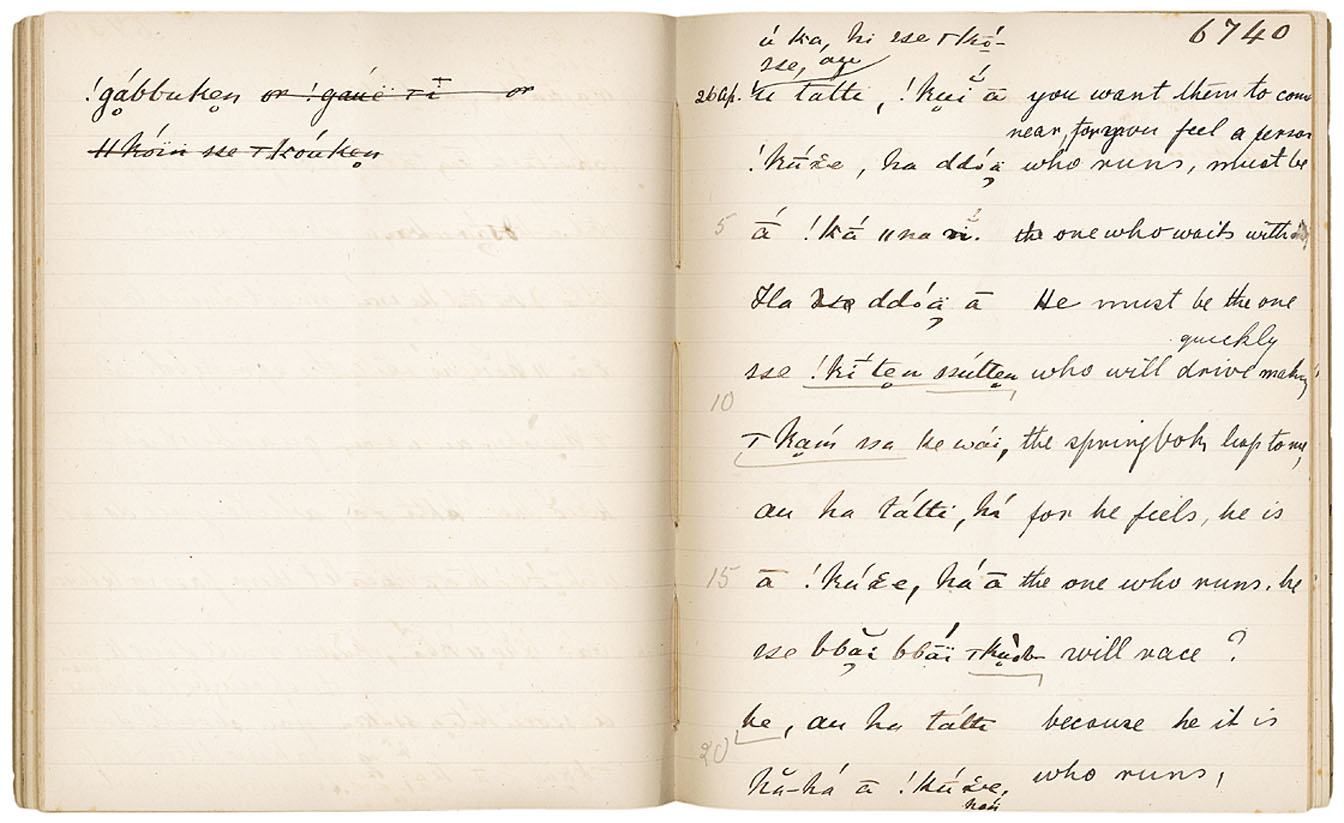 !gábbuken or !gauë ⊤ī or
ǁkóïn sse ⊤kóuken
6740
ú ka, hi sse ⊤kó-
sse, áu
26 Ap. ú tatti, !kui ā you want them to come
near, for you feel a person
!kúẋe, ha ddóä who runs, must be
5 ā́ !kā́ ǁna the one who waits
Ha ddóä ā He must be the one
quickly
sse !kī́ten sútten who will drive
10
⊤kam ssa ke wái, the springbok leap to
au ha tátti, há for he feels, he is
15 ā !kúẋe, há ā the one who runs. he
sse bbăi bbāi will race ?
he, au ha tátti because he it is
20
hă-há ā !kúẋe, who runs,